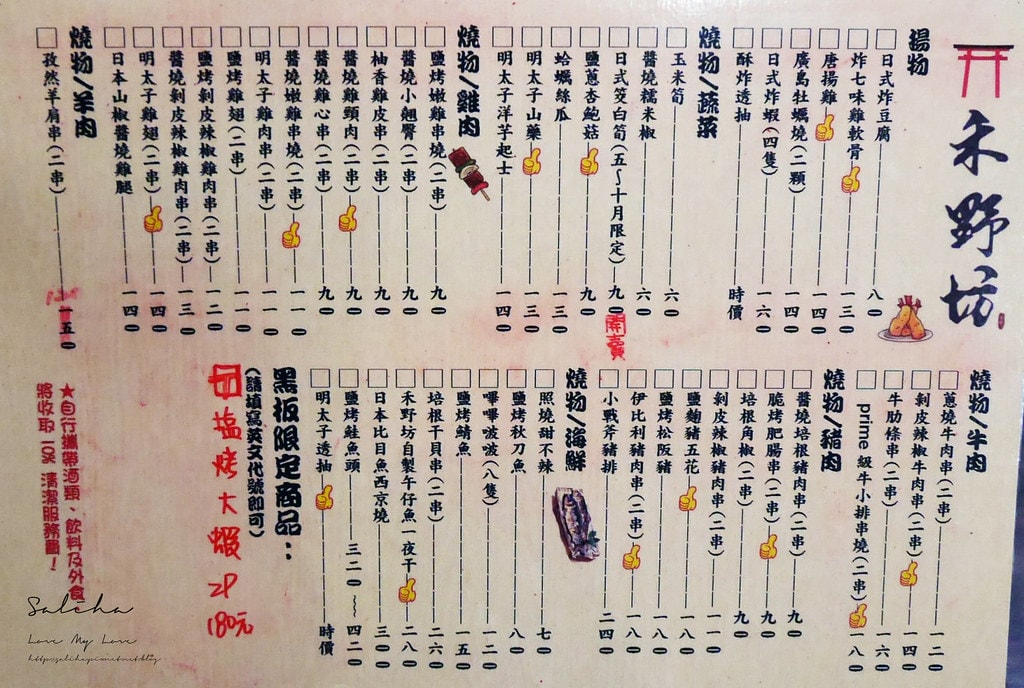 禾野坊
揚物
日式炸豆腐 八0
炸七味雞軟骨 一三0
唐揚雞 一四0
廣島牡蠣燒(二顆) 一四0
日式炸蝦(四隻) 一六0
酥炸透抽 時價
燒物/蔬菜
玉米筍 六0
醬燒糯米椒 六0
日式筊白筍(五~十月限定) 九0
鹽蔥杏鮑菇 九0
蛤蠣絲瓜 一三0
明太子山藥 一三0
明太子洋芋起士 一四0
燒物/雞肉
鹽烤嫩雞串燒(二串) 九0
醬燒小翹臀(二串) 九0
柚香雞皮串(二串) 九0
醬燒雞頸肉(二串) 九0
醬燒雞心串(二串) 九0
醬燒嫩雞串燒(二串) 一一0
明太子雞肉串(二串) 一一0
鹽烤雞翅(二串) 一一0
鹽烤剝皮辣椒雞肉串(二串) 一二0
醬燒剝皮辣椒雞肉串(二串) 一三0
明太子雞翅(二串) 一四0
日本山椒醬燒雞腿 一四0
燒物/羊肉
孜然羊肩串(二串) 一五0
燒物/牛肉
蔥燒牛肉串(二串) 一二0
剝皮辣椒牛肉串(二串) 一四0
牛肋條串(二串) 一六0
prime級牛小排串燒(二串) 一八0
燒物/豬肉
醬燒培根豬肉串(二串) 九0
脆烤肥腸串(二串) 九0
培根角椒(二串) 九0
剝皮辣椒豬肉串(二串) 一一0
鹽麴豬五花 一八0
鹽烤松阪豬 一八0
伊比利豬肉串(二串) 一八0
小戰斧豬排 二四0
燒物/海鮮
照燒甜不辣 七0
鹽烤秋刀魚 八0
嗶嗶啵啵(八隻) 一二0
鹽烤鯖魚 一五0
培根干貝串(二串) 二六0
禾野坊自製午仔魚一夜干 二八0
日本比目魚西京燒 三00
鹽烤鮭魚頭 三二0~四二0
明太子透抽 時價
黑板限定商品：
(請填寫英文代號即可)
塩烤大蝦 2P 180元
★自行攜帶酒類、飲料及外食
將收取10% 清潔服務費！
Salcha
Love My Love